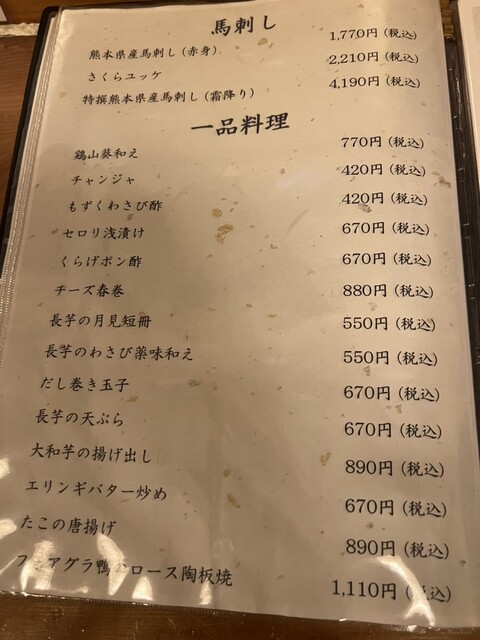 馬刺し
熊本県産馬刺し(赤身) 1,770円(税込)
さくらユッケ 2,210円(税込)
特撰熊本県産馬刺し(霜降り) 4,190円(税込)
一品料理
鶏山葵和え 770円(税込)
チャンジャ 420円(税込)
もずくわさび酢 420円(税込)
セロリ浅漬け 670円(税込)
くらげポン酢 670円(税込)
チーズ春巻 880円(税込)
長芋の月見短冊 550円(税込)
長芋のわさび薬味和え 550円(税込)
だし巻き玉子 670円(税込)
長芋の天ぷら 670円(税込)
大和芋の揚げ出し 890円(税込)
エリンギバター炒め 670円(税込)
たこの唐揚げ 890円(税込)
フォアグラ鴨 ロース陶板焼 1,110円(税込)